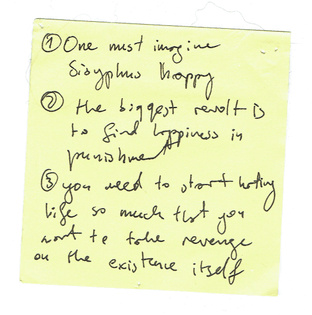 ① One must imagine
Sisyphus happy
② the biggest revolt is
to find happiness in
punishment
③ you need to start hating
life so much that you
want to take revenge
on the existence itself